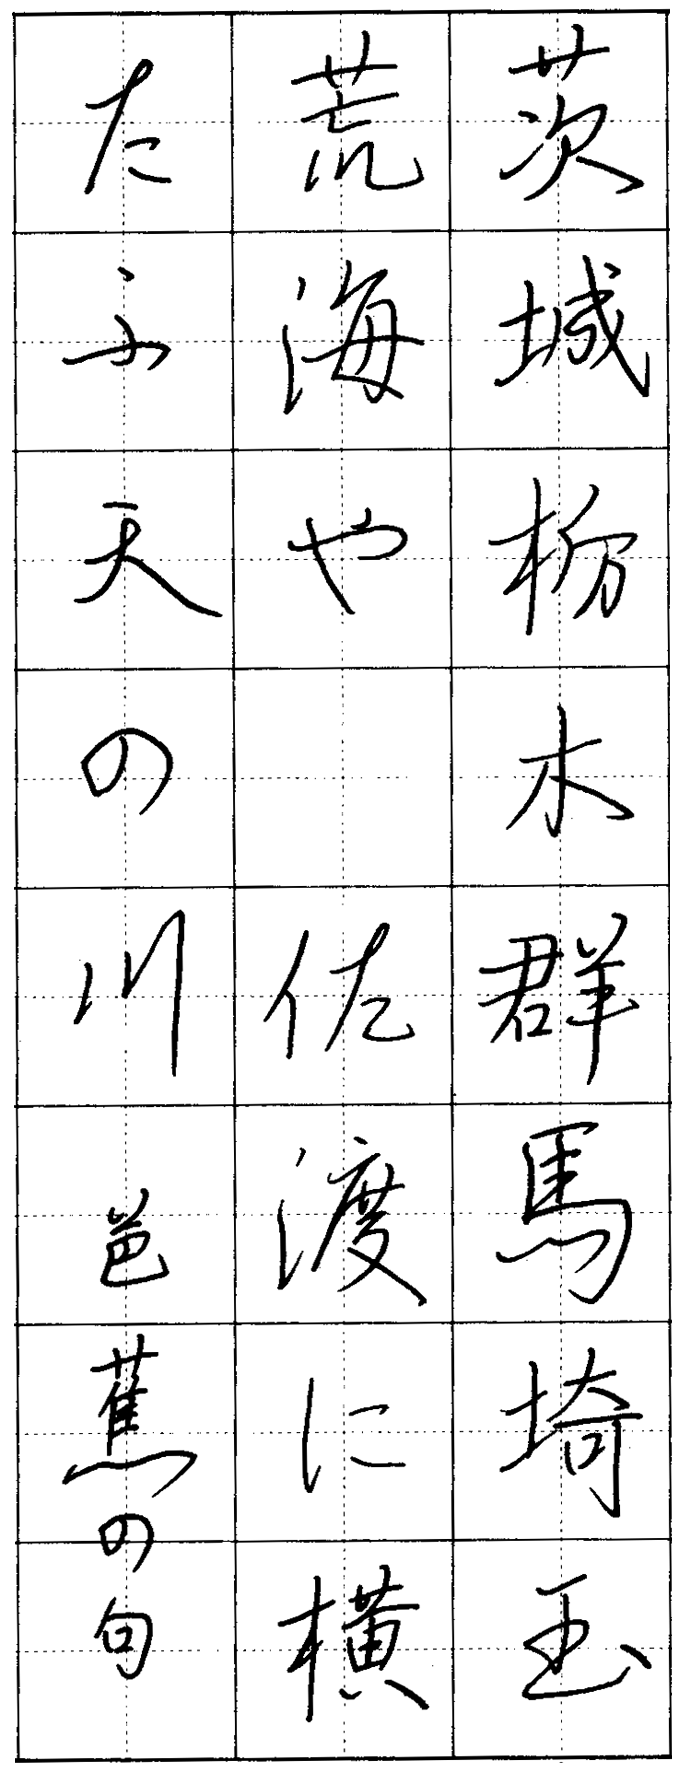 茨城栃木群馬埼玉
荒海や　佐渡に横
たふ天の川芭蕉の句